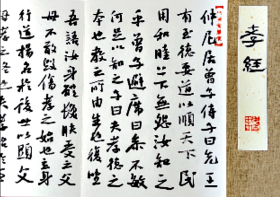 孝經
仲尼居曾子侍子曰先王
有至德要道以順天下民
用和睦上下無怨汝知之
乎曾子避席曰參不敏
何足以知之子曰夫孝德之
本也教之所由生也復坐
吾語汝身體髮膚受之父
母不敢毀傷孝之始也立身
行道揚名於後世以顯父